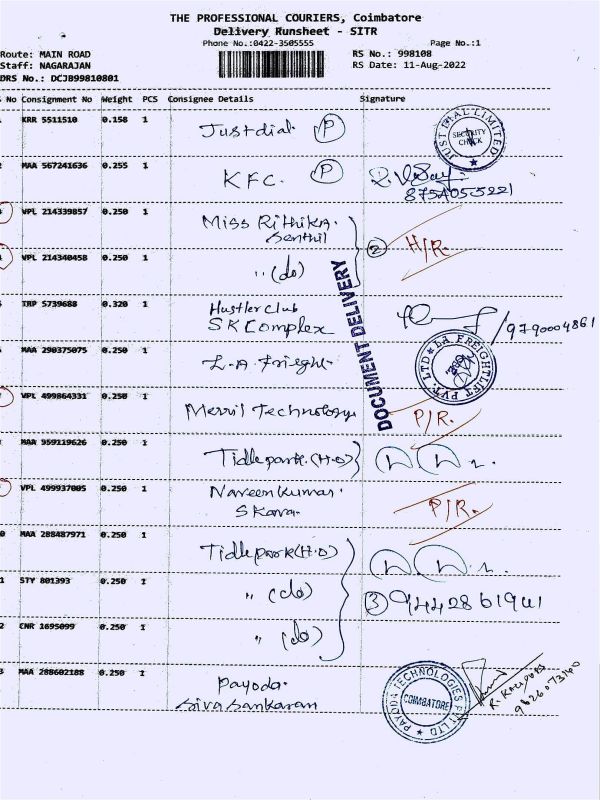 THE PROFESSIONAL COURIERS, Coimbatore
Delivery Runsheet - SITR
Phone No.:0422-3505555 Page No.:1
Route: MAIN ROAD RS No.: 998108
Staff: NAGARAJAN RS Date: 11-Aug-2022
DRS No.: DCJB99810801
No Consignment No Weight PCS Consignee Details Signature
KRR 5511510 0.158 1 Justdial P
JUST DIAL LIMITED
SECURITY CHECK
MAA 567241636 0.255 1 KFC. P
VPL 214339857 0.250 1 Miss Rithika.
Senthil
2 H/R.
VPL 214340458 0.250 1 " (do)
DOCUMENT DELIVERY
TRP 5739688 0.320 1 Hustler Club
SK Complex
9790004861
MAA 290375075 0.250 1 L.A. Frieght
LA FREIGHTLIFT PVT. LTD
VPL 499864331 0.250 1 Merril Technology P/R.
MAA 959119626 0.250 1 Tidlepark.(H.O)
VPL 499937005 0.250 1 Naveen Kumar.
P/R.
MAA 288487971 0.250 1 Tidlepark(H.O)
STY 801393 0.250 1 " (do)
3 9442861941
CNR 1695099 0.250 1 " (do)
MAA 288602188 0.250 1 Payoda.
Siva Sankaran
PAYODA TECHNOLOGIES PVT LTD
COIMBATORE